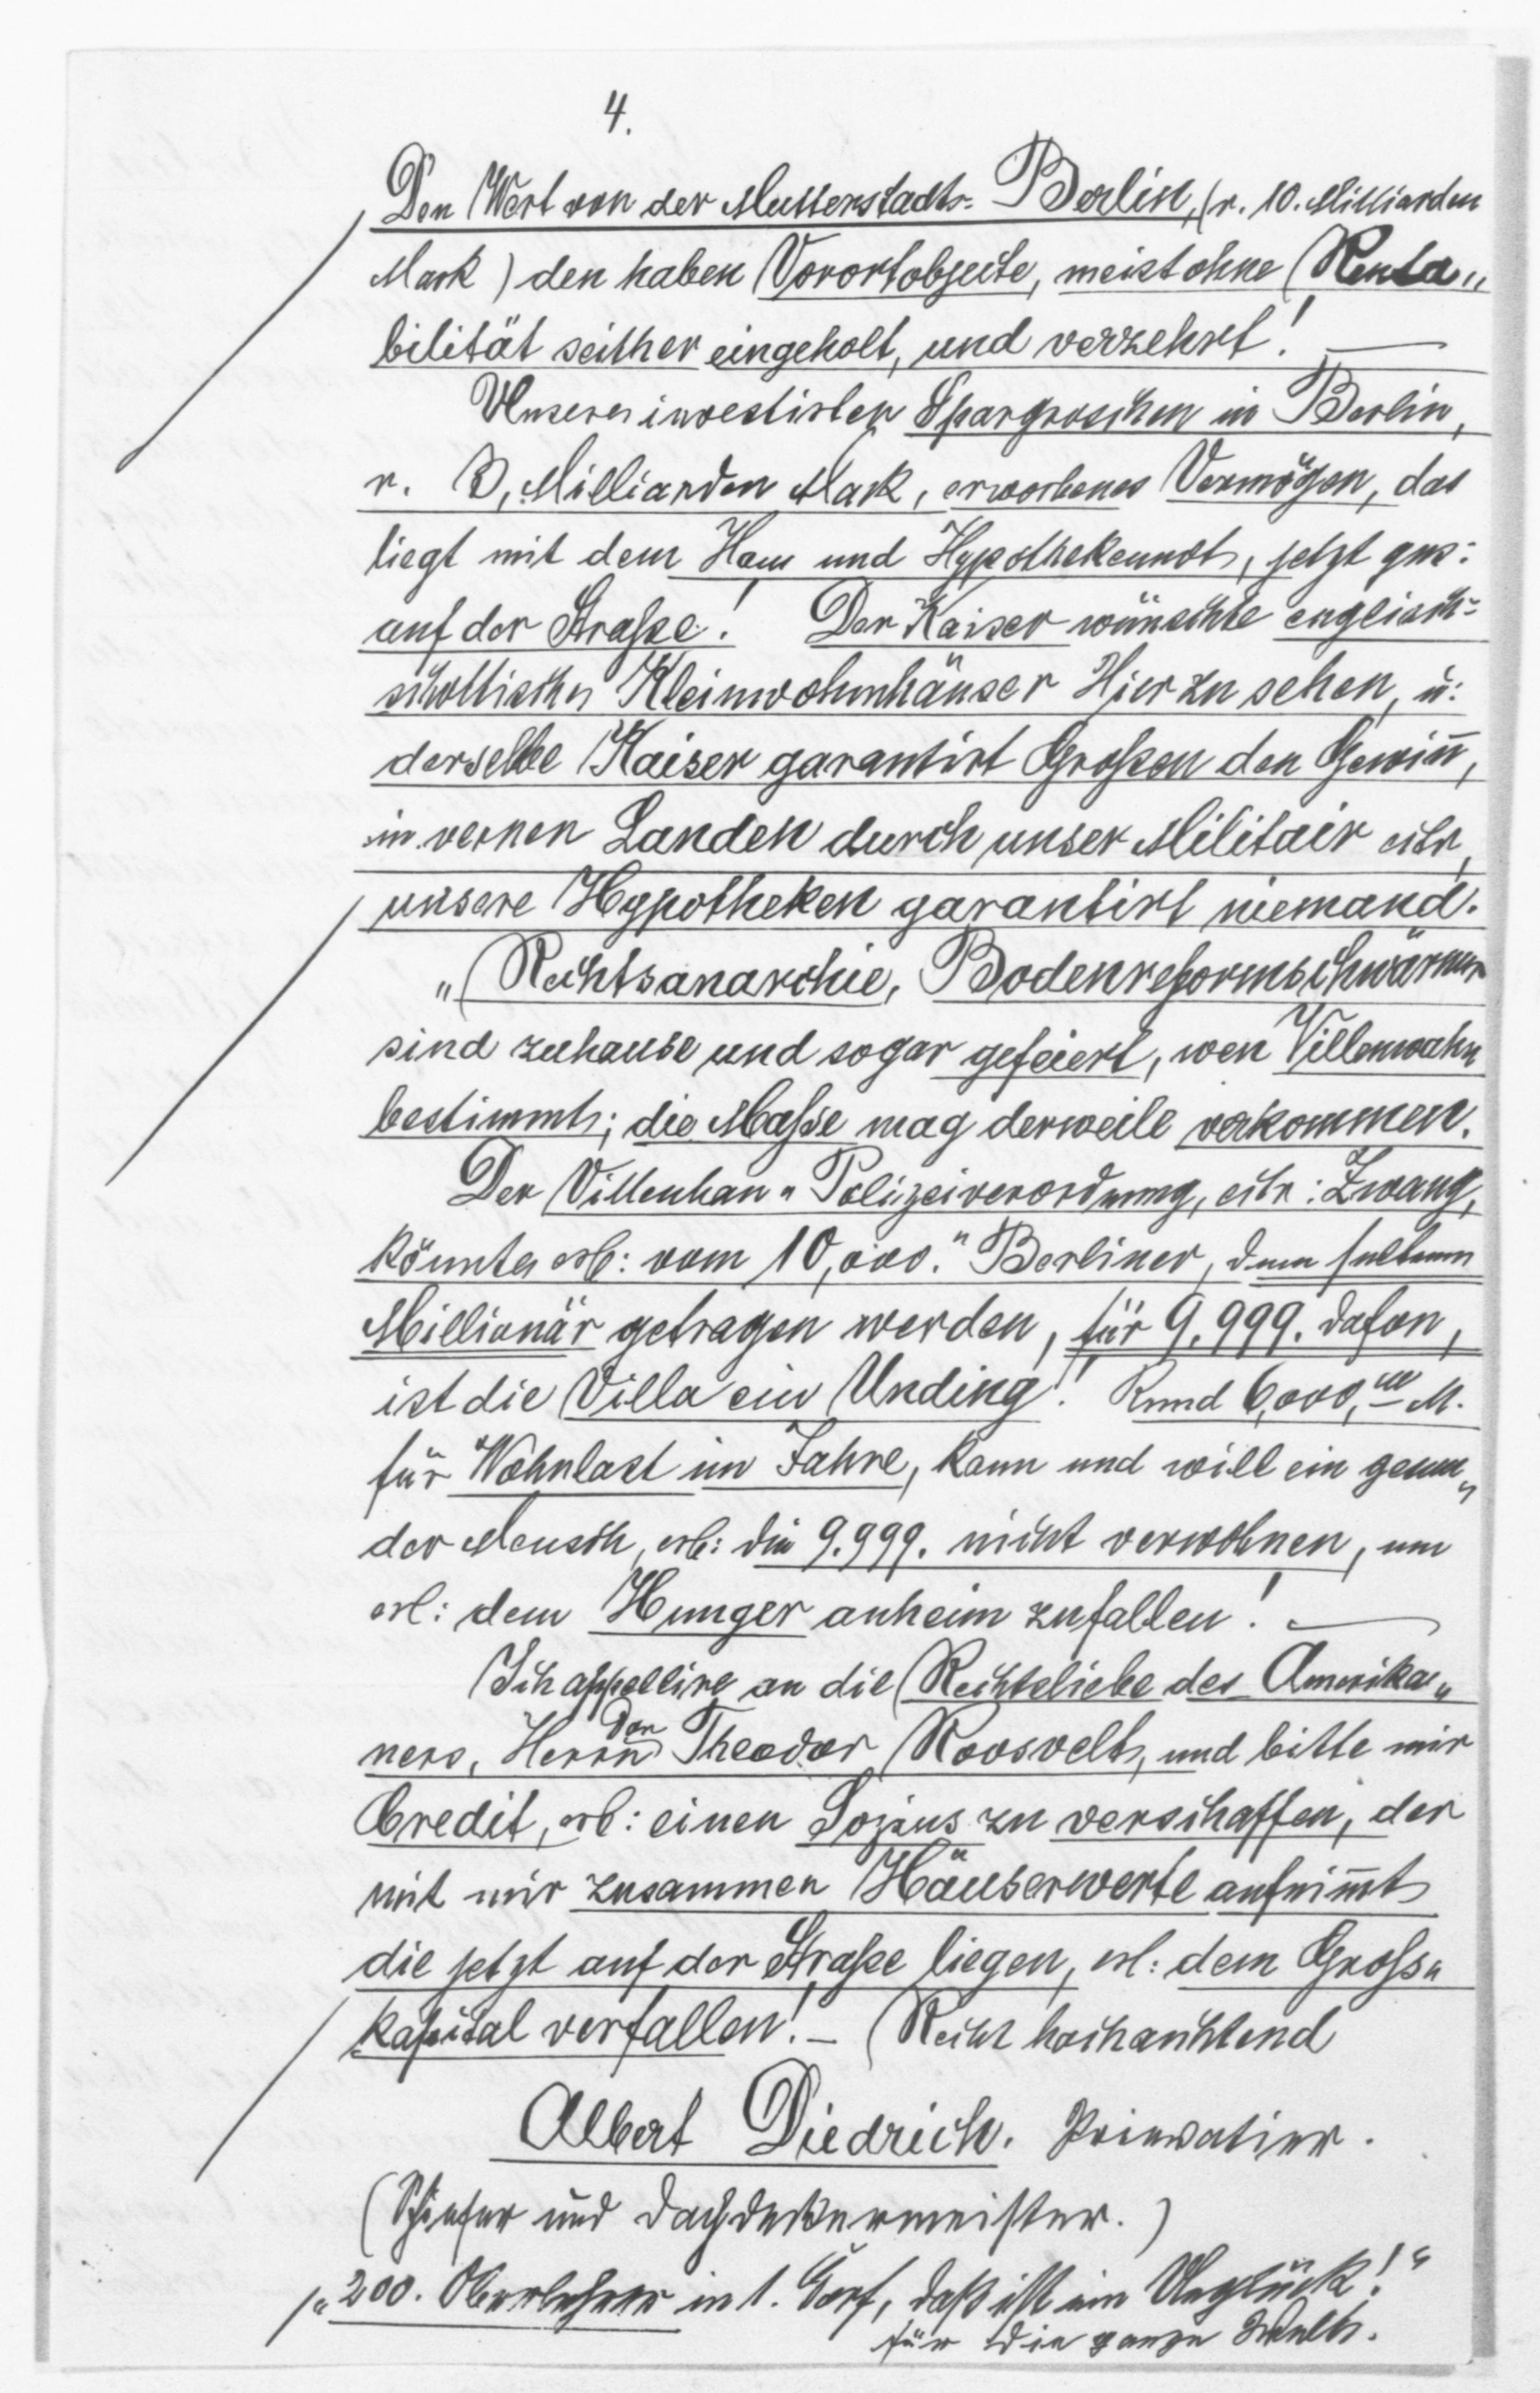 4.
Den Wert von der Mutterstadt Berlin, (r. 10. Milliarden
Mark) den haben Vorortobjecte, meist ohne Renta„
bilität seither eingeholt, und verzehrt! —
Unsere investirten Spargroschen in Berlin,
r. 3, Milliarden Mark, erworbenes Vermögen, das
liegt mit dem Haus und Hypothekennot, jetzt gus:
auf der Straße! Der Kaiser wünschte englisch-
schottische Kleinwohnhäuser Hier zu sehen, u:
derselbe Kaiser garantirt Grossen den Gewinn,
in vernen Landen durch unser Militair etc,
unsere Hypotheken garantirt niemand.
„Rechtsanarchie, Bodenreformschwärmer
sind zuhause und sogar gefeiert, wen Villenwahn
bestimmt; die Masse mag derweile verkommen.
Der Villenban„ Polizeiverordnung, : Zwang,
könnte esl: vom 10,000." Berliner, dem seltenen
Millionär getragen werden, für 9.999. dafon,
ist die Villa ein Unding! Rund 6,000, M.
für Wohnlast im Jahre, kann und will ein
der Mensch, esl: die 9.999. nicht verwohnen, um
esl: dem Hunger anheim zufallen! —
Ich appellire an die Rechtsliebe des Amerika„
ners, Herrn Dor Theodor Roosvelt, und bitte mir
Credit, esl: einen Sozius zu verschaffen, der
mit mir zusammen Häuserwerte aufnimmt
die jetzt auf der Straße liegen, esl: dem Gross„
kapital verfallen! — Recht hochachtend
Albert Diedrich. Priewatier.
(Schiefer und Dachdekermeister.)
„200. Oberlehrer in 1. Dorf, daß ist ein Unglück!“
für die ganze Welt.